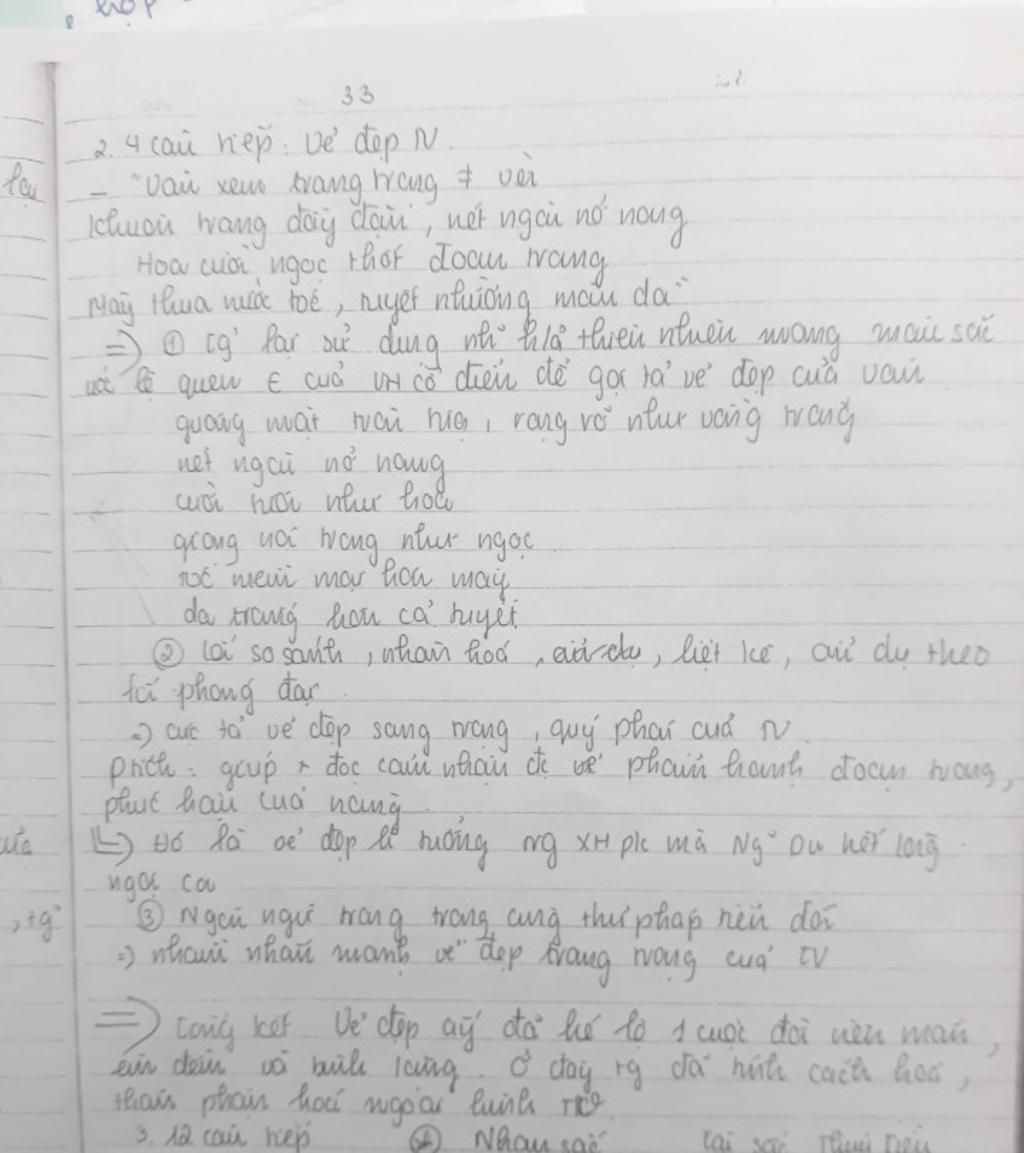 hợp
33
2. 4 câu tiếp: Vẻ đẹp TV
lại
- "Vân xem trang trọng ≠ vời
Khuôn trăng đầy đặn, nét ngài nở nang
Hoa cười ngọc thốt đoan trang
Mây thua nước tóc, tuyết nhường màu da"
=> ① tg' lại sử dụng hả thiên nhiên mang màu sắc
ước lệ quen ∈ của VH cổ điển để gợi tả vẻ đẹp của Vân
gương mặt tròn trịa, rạng rỡ như vầng trăng
nét ngài nở nang
cười tươi như hoa
giọng nói trong như ngọc
tóc mềm mại hơn mây
da trắng hơn cả tuyết
② Lối so sánh, nhân hoá, ẩn dụ, liệt kê, ẩn dụ theo
lối phóng đại
=> cực tả vẻ đẹp sang trọng, quý phái của TV
giúp đọc cảm nhận đc về phẩm hạnh đoan trang,
phúc hậu của nàng
ưa
Đó là vẻ đẹp lí tưởng XH pk mà Ng~ Du hết lòng
ngợi ca
, tg'
③ Ngôn ngữ trang trọng cùng thư pháp tiểu đối
=> nhằm nhấn mạnh vẻ đẹp trang trọng của TV
=> Tổng kết Vẻ đẹp ấy đã hé lộ 1 cuộc đời viên mãn,
êm đềm và bình lặng. Ở đây tg đã tính cách hoá,
thân phận hoá ngoại hình
3. 12 câu tiếp Nhan sắc tài sắc Thuý Kiều